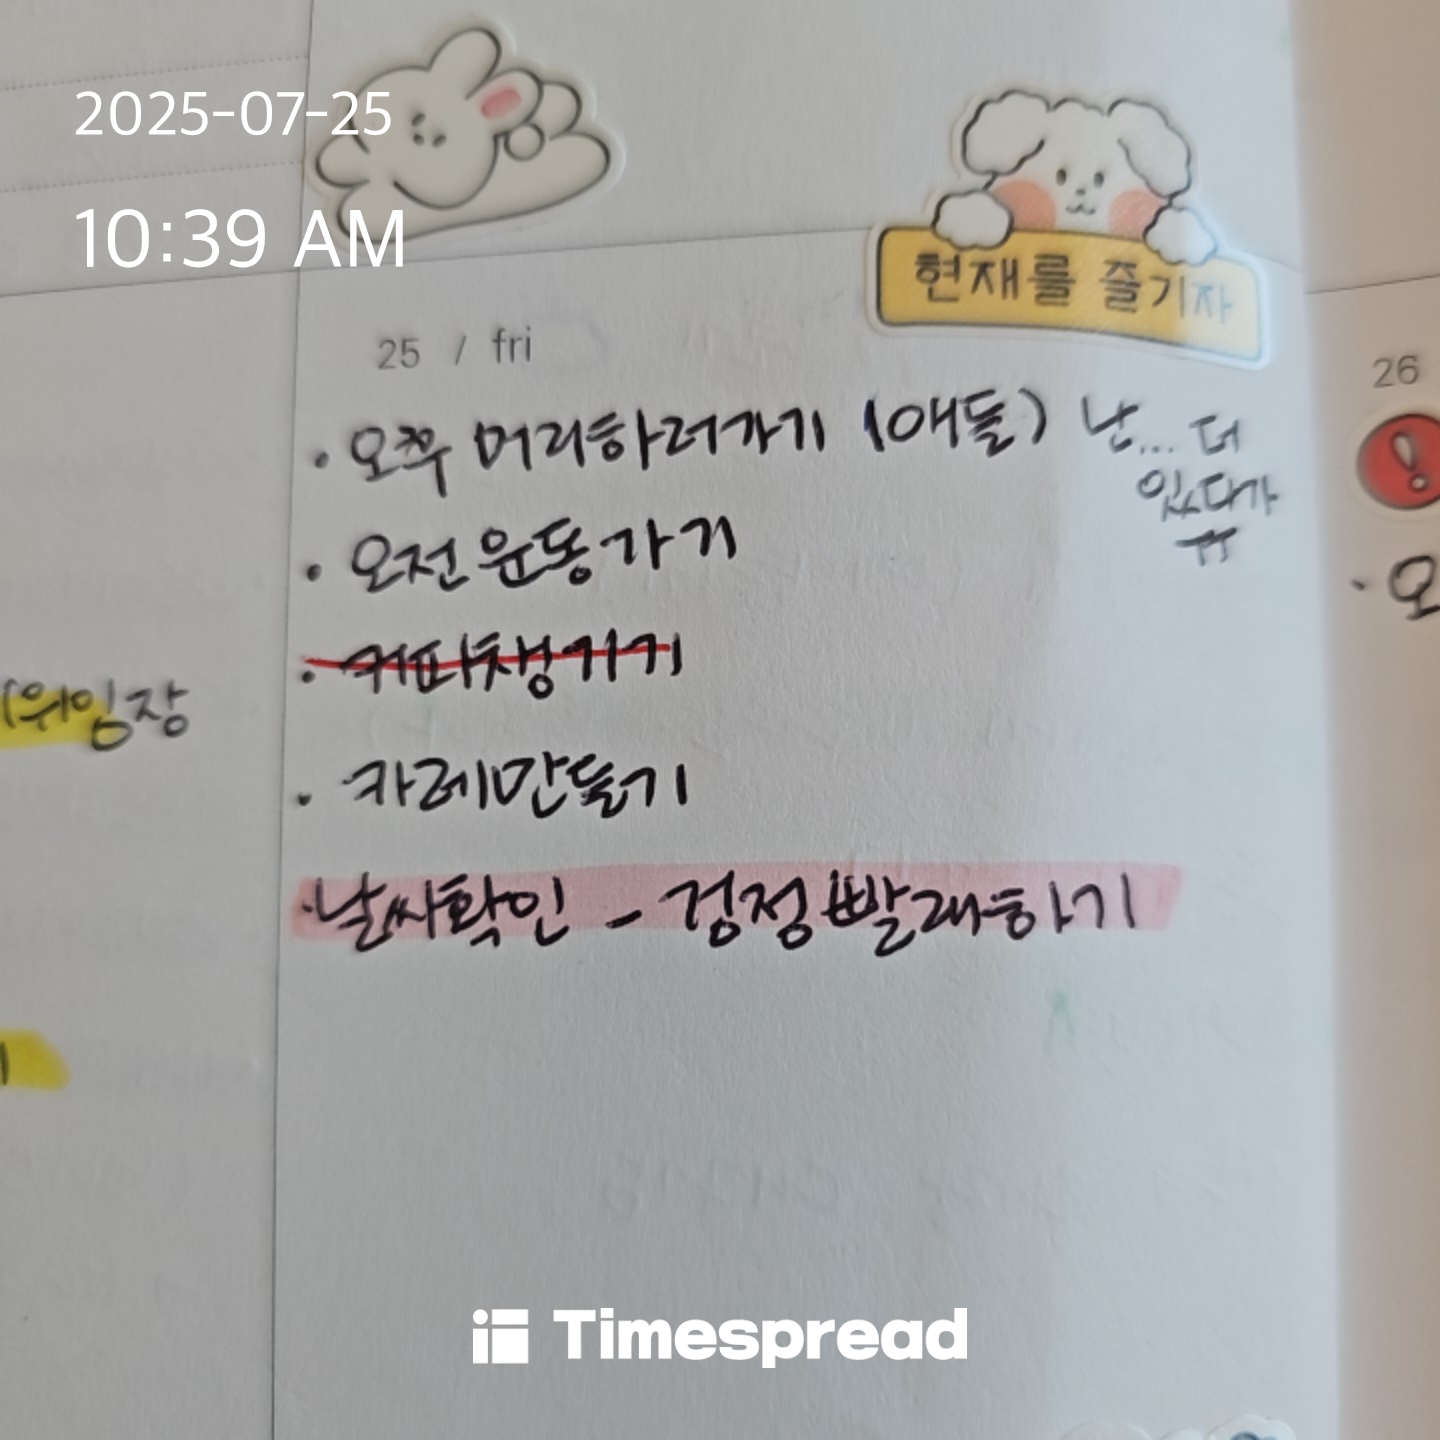 2025-07-25
10:39 AM
현재를 즐기자
25 / fri
26
· 오후 머리하러가기 (애들) 난... 더
있다가
ㅠ
· 오전 운동가기
· 커피챙기기
(위임장
· 카레만들기
· 날씨확인 - 검정빨래하기
Timespread